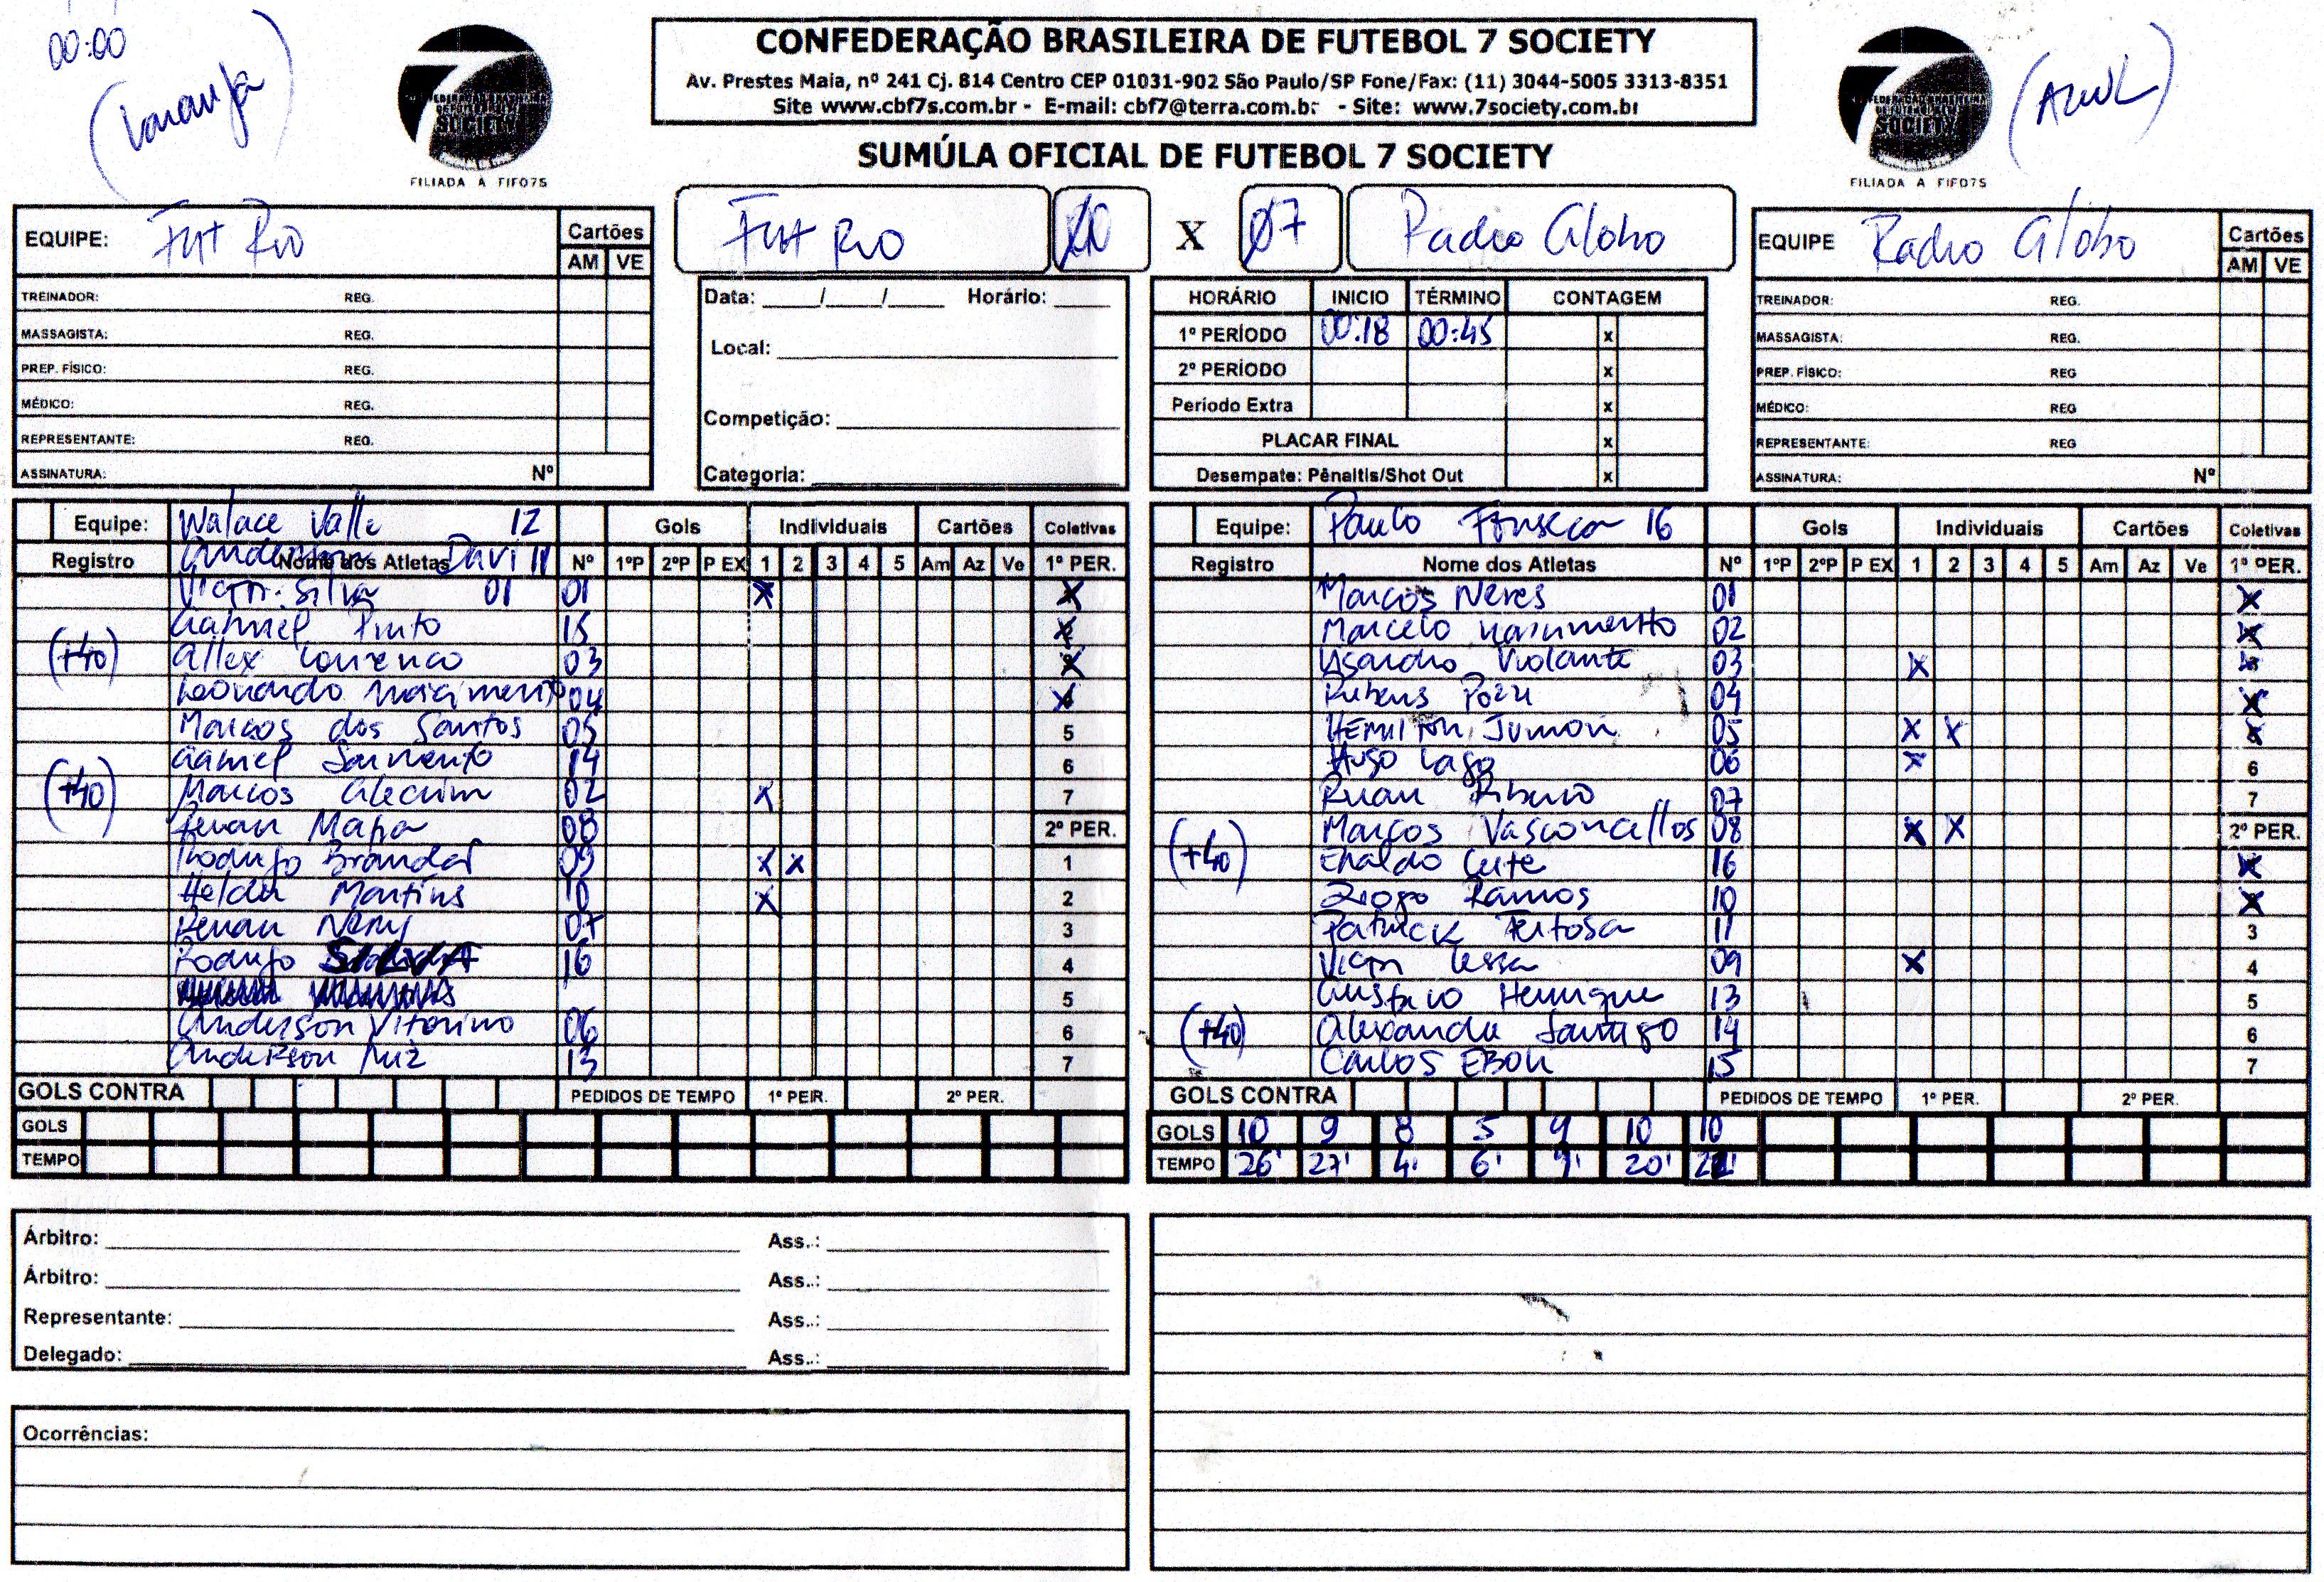 00:00
(Laranja)
CONFEDERAÇÃO BRASILEIRA DE FUTEBOL 7 SOCIETY
Av. Prestes Maia, nº 241 Cj. 814 Centro CEP 01031-902 São Paulo/SP Fone/Fax: (11) 3044-5005 3313-8351
Site www.cbf7s.com.br - E-mail: cbf7@terra.com.br - Site: www.7society.com.br
(AZUL)
SOCIETY
FILIADA A FIFO7S
SOCIETY
FILIADA A FIFO7S
SUMÚLA OFICIAL DE FUTEBOL 7 SOCIETY
Fut Rio X 07 Radio Globo
EQUIPE: Fut Rio Cartões
AM VE
TREINADOR: REG.
MASSAGISTA: REG.
PREP. FÍSICO: REG.
MÉDICO: REG.
REPRESENTANTE: REG.
ASSINATURA: Nº
Data: ____/____/____ Horário: ____
Local:
Competição:
Categoria:
HORÁRIO INICIO TÉRMINO CONTAGEM
1º PERÍODO 00:18 00:45 x
2º PERÍODO x
Período Extra x
PLACAR FINAL x
Desempate: Pênaltis/Shot Out x
EQUIPE Radio Globo Cartões
AM VE
TREINADOR: REG.
MASSAGISTA: REG.
PREP. FÍSICO: REG
MÉDICO: REG
REPRESENTANTE: REG
ASSINATURA: Nº
Equipe: Walace Valle 12 Gols Individuais Cartões Coletivas
Anderson Davi 11
Registro Nome dos Atletas Nº 1ºP 2ºP P EX 1 2 3 4 5 Am Az Ve 1º PER.
Victor Silva 01 01 X X
Gabriel Pinto 15 X
(+40) Allex Lourenco 03 X
Leonardo Nascimento 04 X
Marcos dos Santos 05 5
Gabriel Sarmento 14 6
(+40) Marcos Alecrim 02 X 7
Renan Mafra 08 2º PER.
Rodrigo Brandão 09 X X 1
Helder Martins 10 X 2
Renan Nery 07 3
Rodrigo SILVA 16 4
5
Anderson Vitorino 06 6
Anderson Luiz 13 7
GOLS CONTRA PEDIDOS DE TEMPO 1º PER. 2º PER.
GOLS
TEMPO
Equipe: Paulo Fonseca 16 Gols Individuais Cartões Coletivas
Registro Nome dos Atletas Nº 1ºP 2ºP P EX 1 2 3 4 5 Am Az Ve 1º PER.
Marcos Neres 01 X
Marcelo Nascimento 02 X
Lisandro Violante 03 X X
Rubens Pozzi 04 X
Hemilton Junior 05 X X X
Hugo Lago 06 X 6
Ruan Ribeiro 07 7
Marcos Vasconcellos 08 X X 2º PER.
(+40) Enaldo 16 X
Diogo Ramos 10 X
Patrick Feitosa 11 3
Victor Lessa 09 X 4
Gustavo Henrique 13 5
(+40) Alexandre Santiago 14 6
Carlos Eboli 15 7
GOLS CONTRA PEDIDOS DE TEMPO 1º PER. 2º PER.
GOLS 10 9 8 5 9 10 10
TEMPO 26' 27' 4' 6' 9' 20'
Árbitro: Ass.:
Árbitro: Ass.:
Representante: Ass.:
Delegado: Ass.:
Ocorrências: